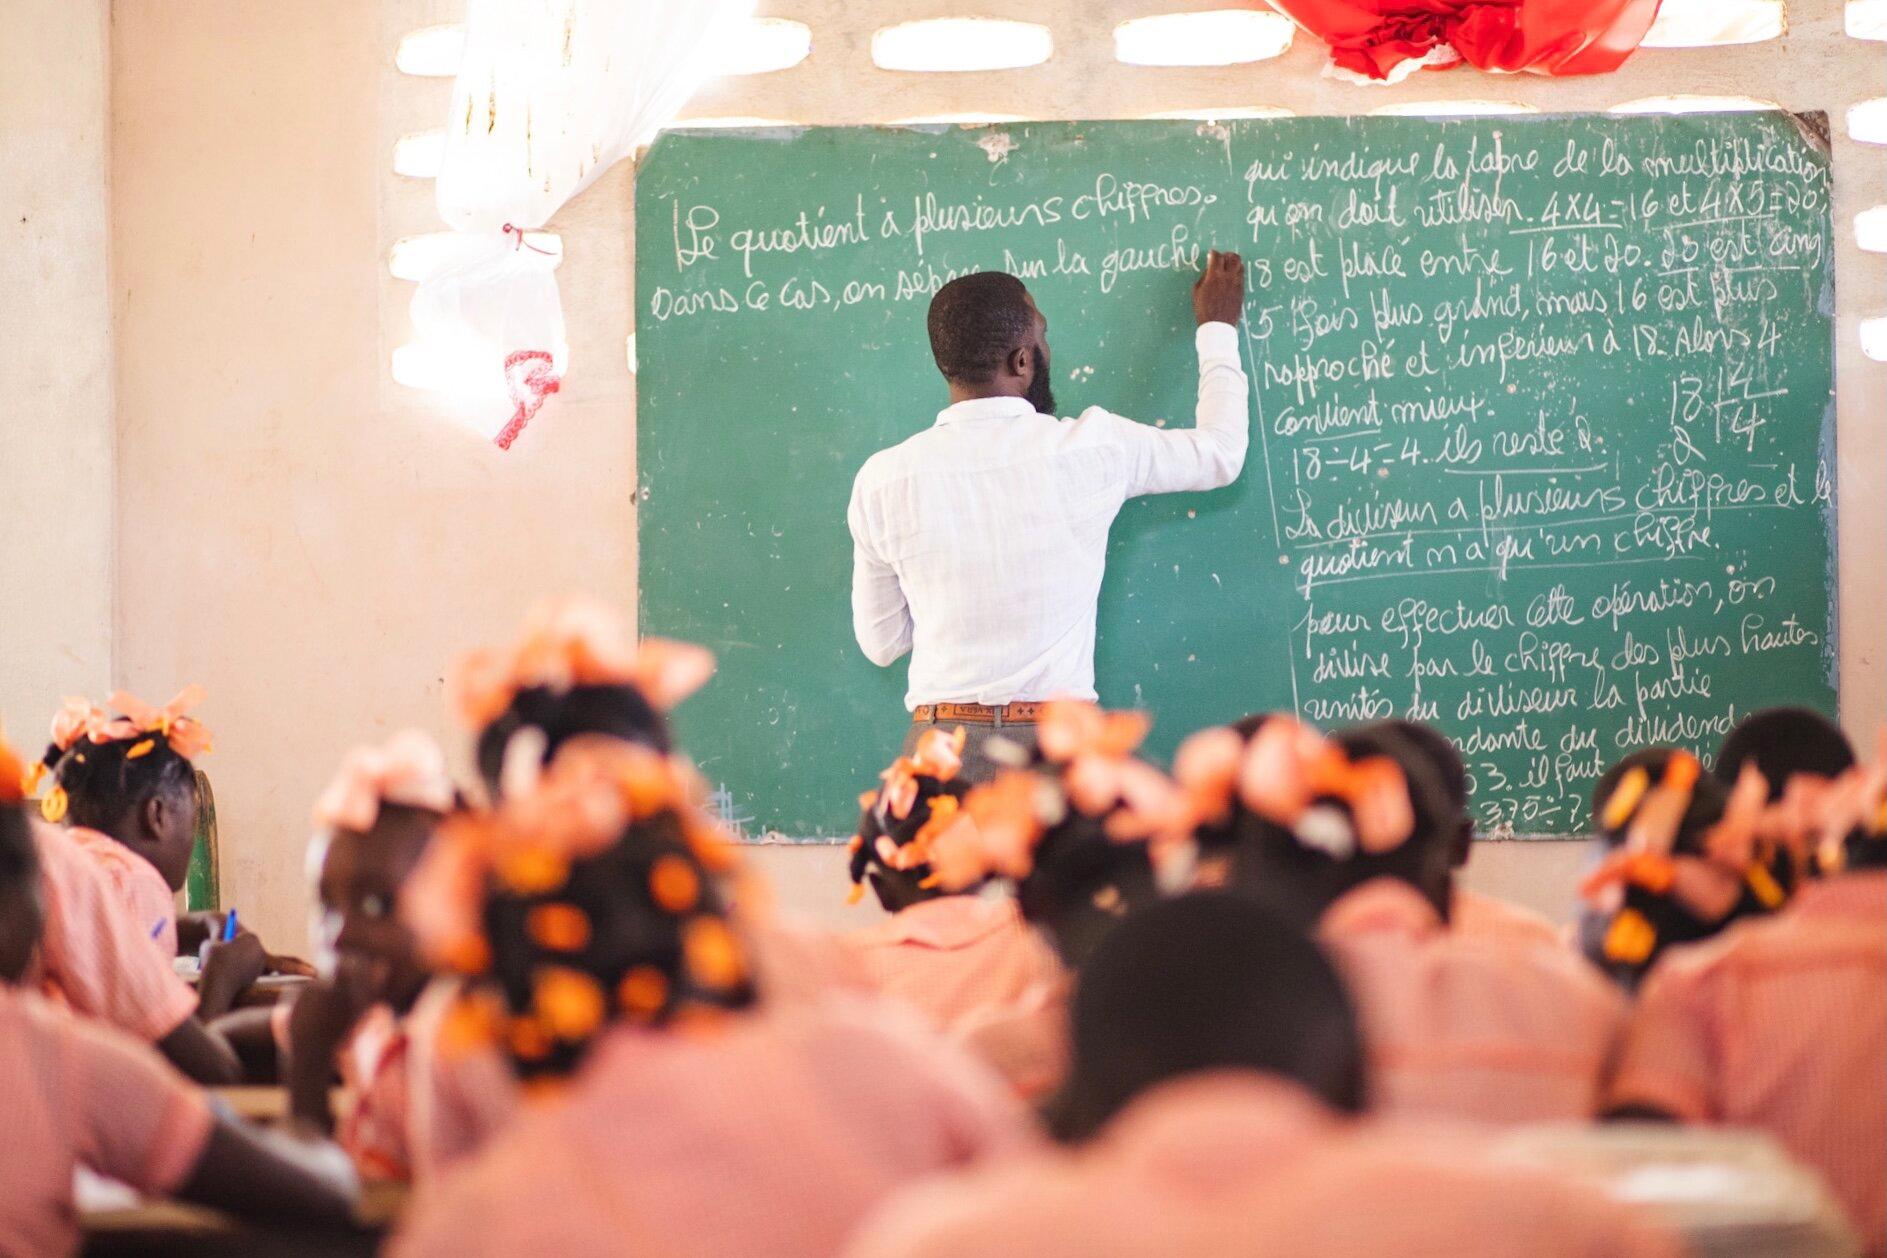 Le quotient à plusieurs chiffres.
Dans ce cas, on sur la gauche
qui indique la table de la multiplication
qu'on doit utiliser. 4x4=16 et 4x5=20,
18 est placé entre 16 et 20. 20 est cinq
5 fois plus grand, mais 16 est plus
rapproché et inferieur à 18. Alors 4
convient mieux.
18÷4=4. ils reste 2.
18 4
4
2
La diviseur a plusieurs chiffres et le
quotient n'a qu'un chiffre.
pour effectuer cette opération, on
divise par le chiffre des plus hautes
unités du diviseur la partie
du dividend
53. il faut
375÷?